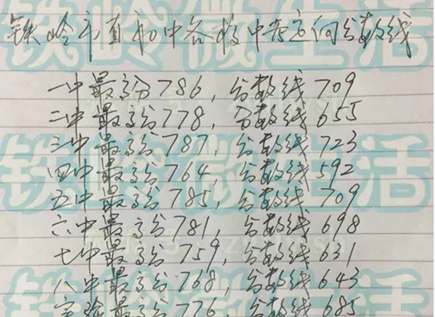 铁岭市直初中各校中考方向分数线
一中最高分786，分数线709
二中最高分778，分数线655
三中最高分787，分数线723
四中最高分764，分数线592
五中最高分785，分数线709
六中最高分781，分数线698
七中最高分759，分数线631
八中最高分768，分数线643
实验最高分776，分数线685
铁岭微生活